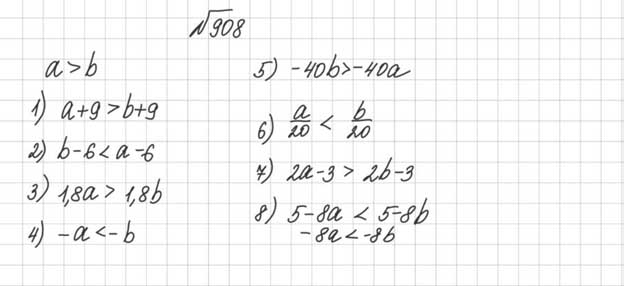 №908
a > b
1) a+9 > b+9
2) b-6 < a-6
3) 1,8a > 1,8b
4) -a < -b
5) -40b > -40a
6) a/20 < b/20
7) 2a-3 > 2b-3
8) 5-8a < 5-8b
-8a < -8b